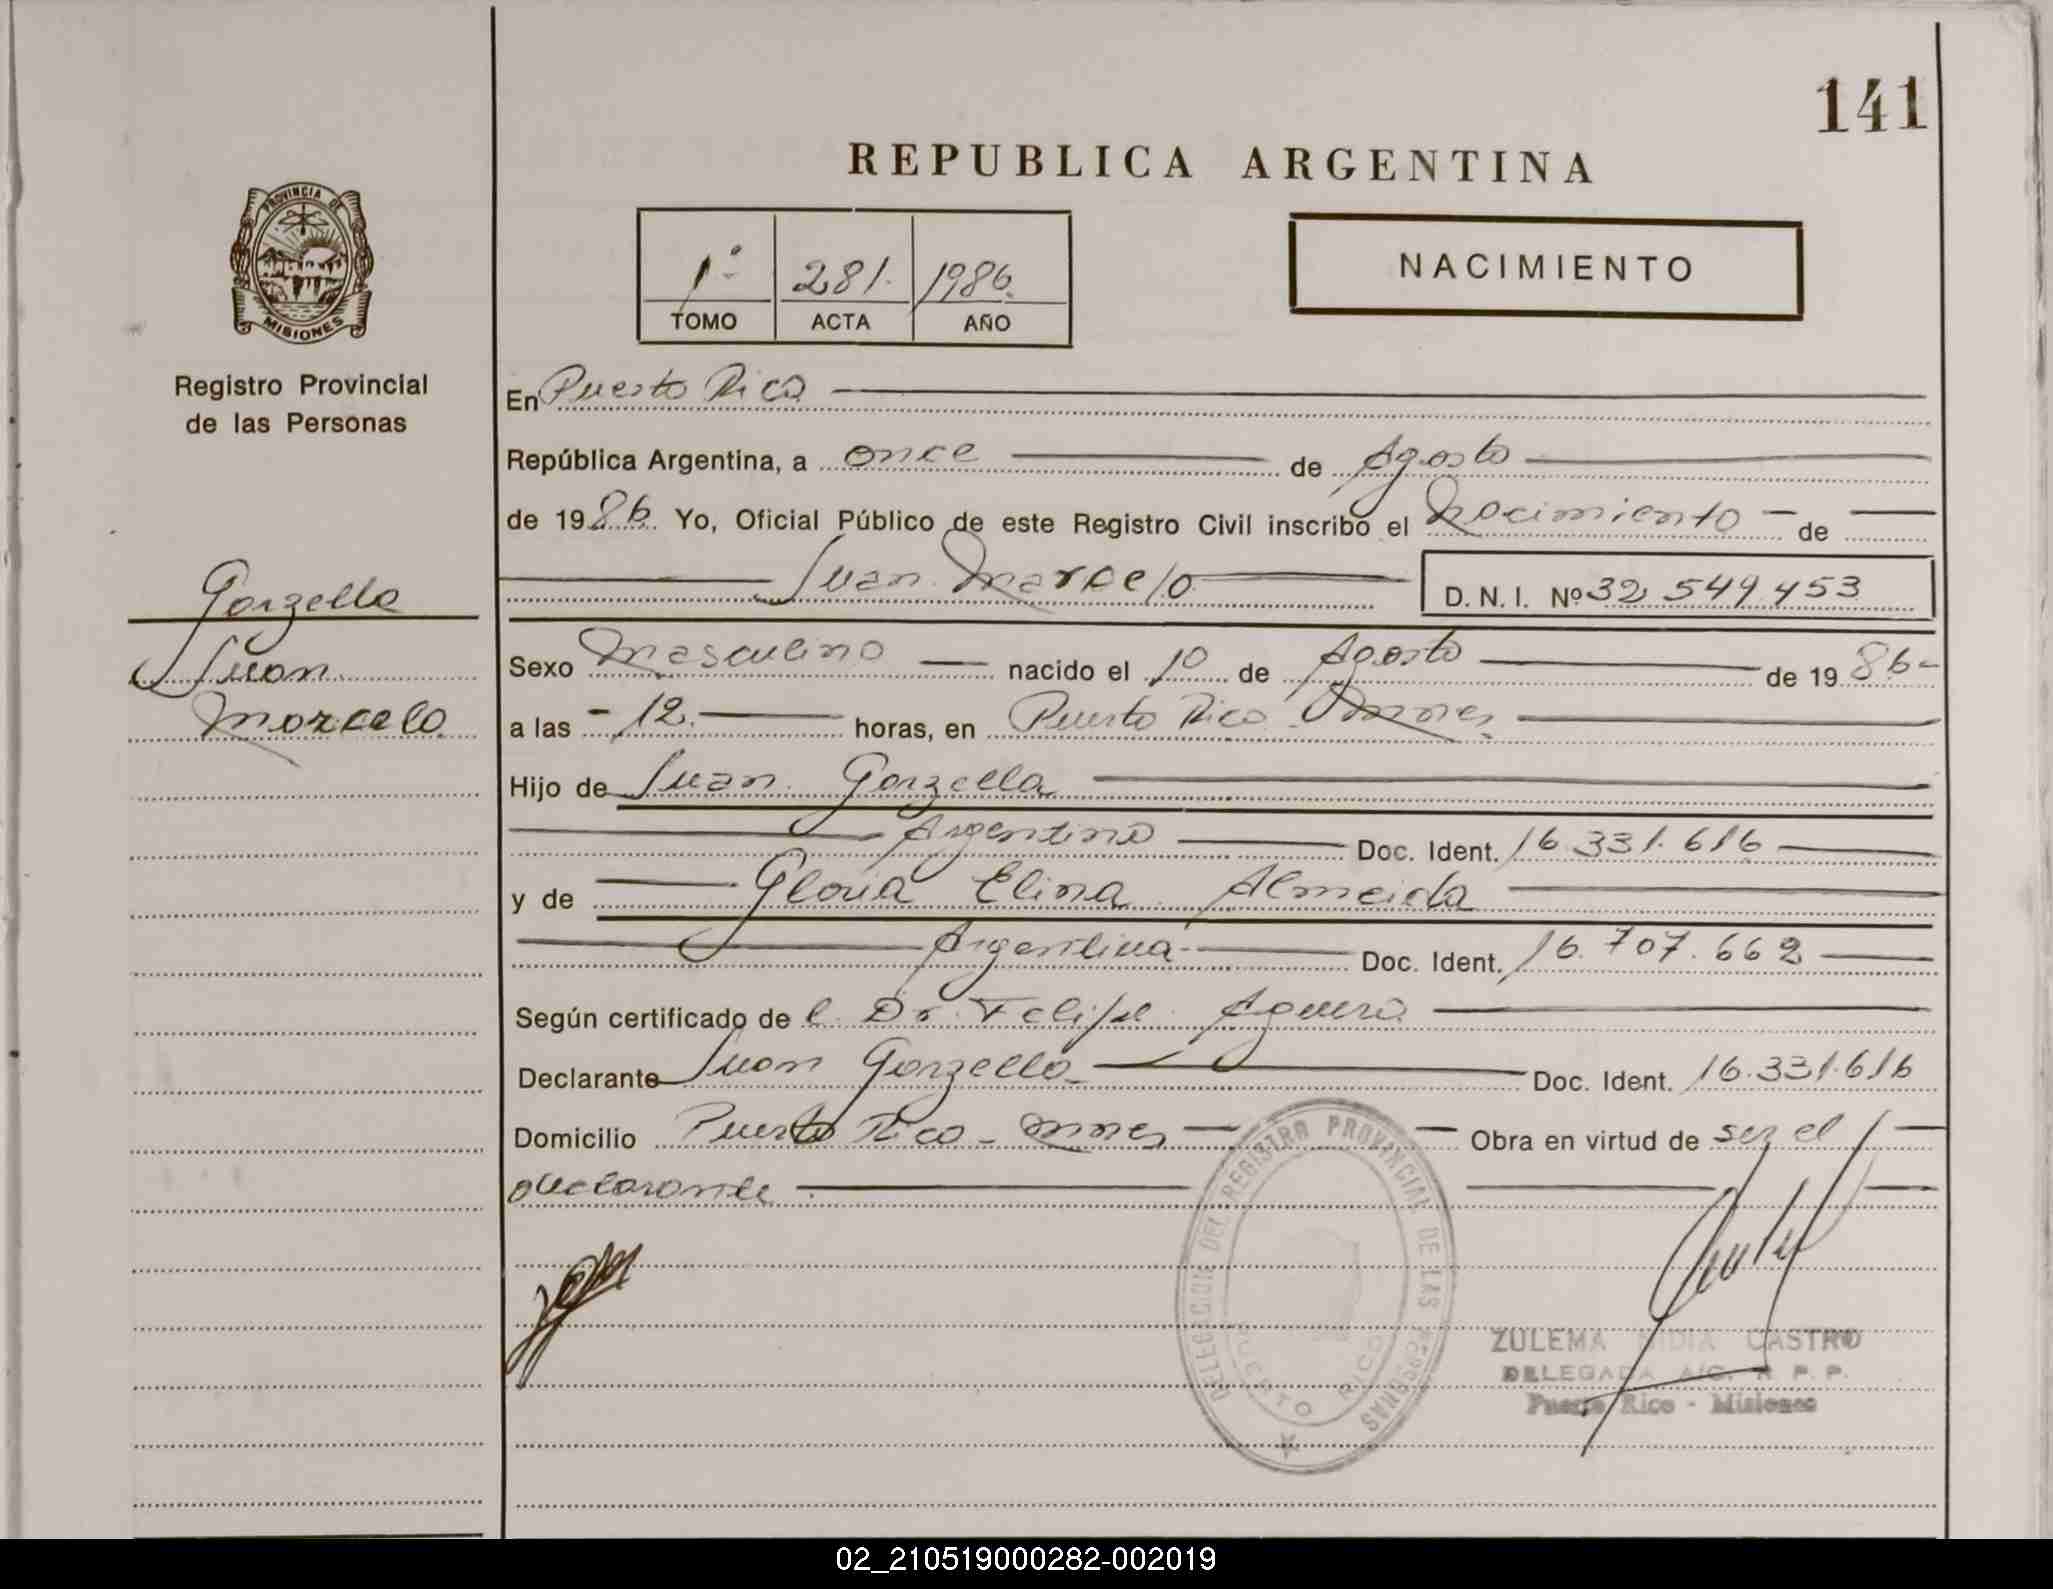 141
REPUBLICA ARGENTINA
PROVINCIA DE
MISIONES
1º 281. 1986.
TOMO ACTA AÑO
NACIMIENTO
Registro Provincial
de las Personas
Gorzella
Juan
Marcelo
En Puerto Rico
República Argentina, a once de Agosto
de 1986. Yo, Oficial Público de este Registro Civil inscribo el Nacimiento de
Juan Marcelo D.N.I. Nº 32 549 453
Sexo Masculino nacido el 10 de Agosto de 1986-
a las - 12. horas, en Puerto Rico - Mnes
Hijo de Juan Gorzella
Argentino Doc. Ident. 16 331.616
y de Gloria Elina Almeida
Argentina Doc. Ident. 16.707.662
Según certificado de l Dr. Felipe Aguero
Declarante Juan Gorzella Doc. Ident. 16.331.616
Domicilio Puerto Rico - Mnes Obra en virtud de ser el
declarante.
DELEGACION DEL REGISTRO PROVINCIAL DE LAS PERSONAS
PUERTO RICO
ZULEMA NIDIA CASTRO
DELEGADA A/C. R. P. P.
Puerto Rico - Misiones
02_210519000282-002019